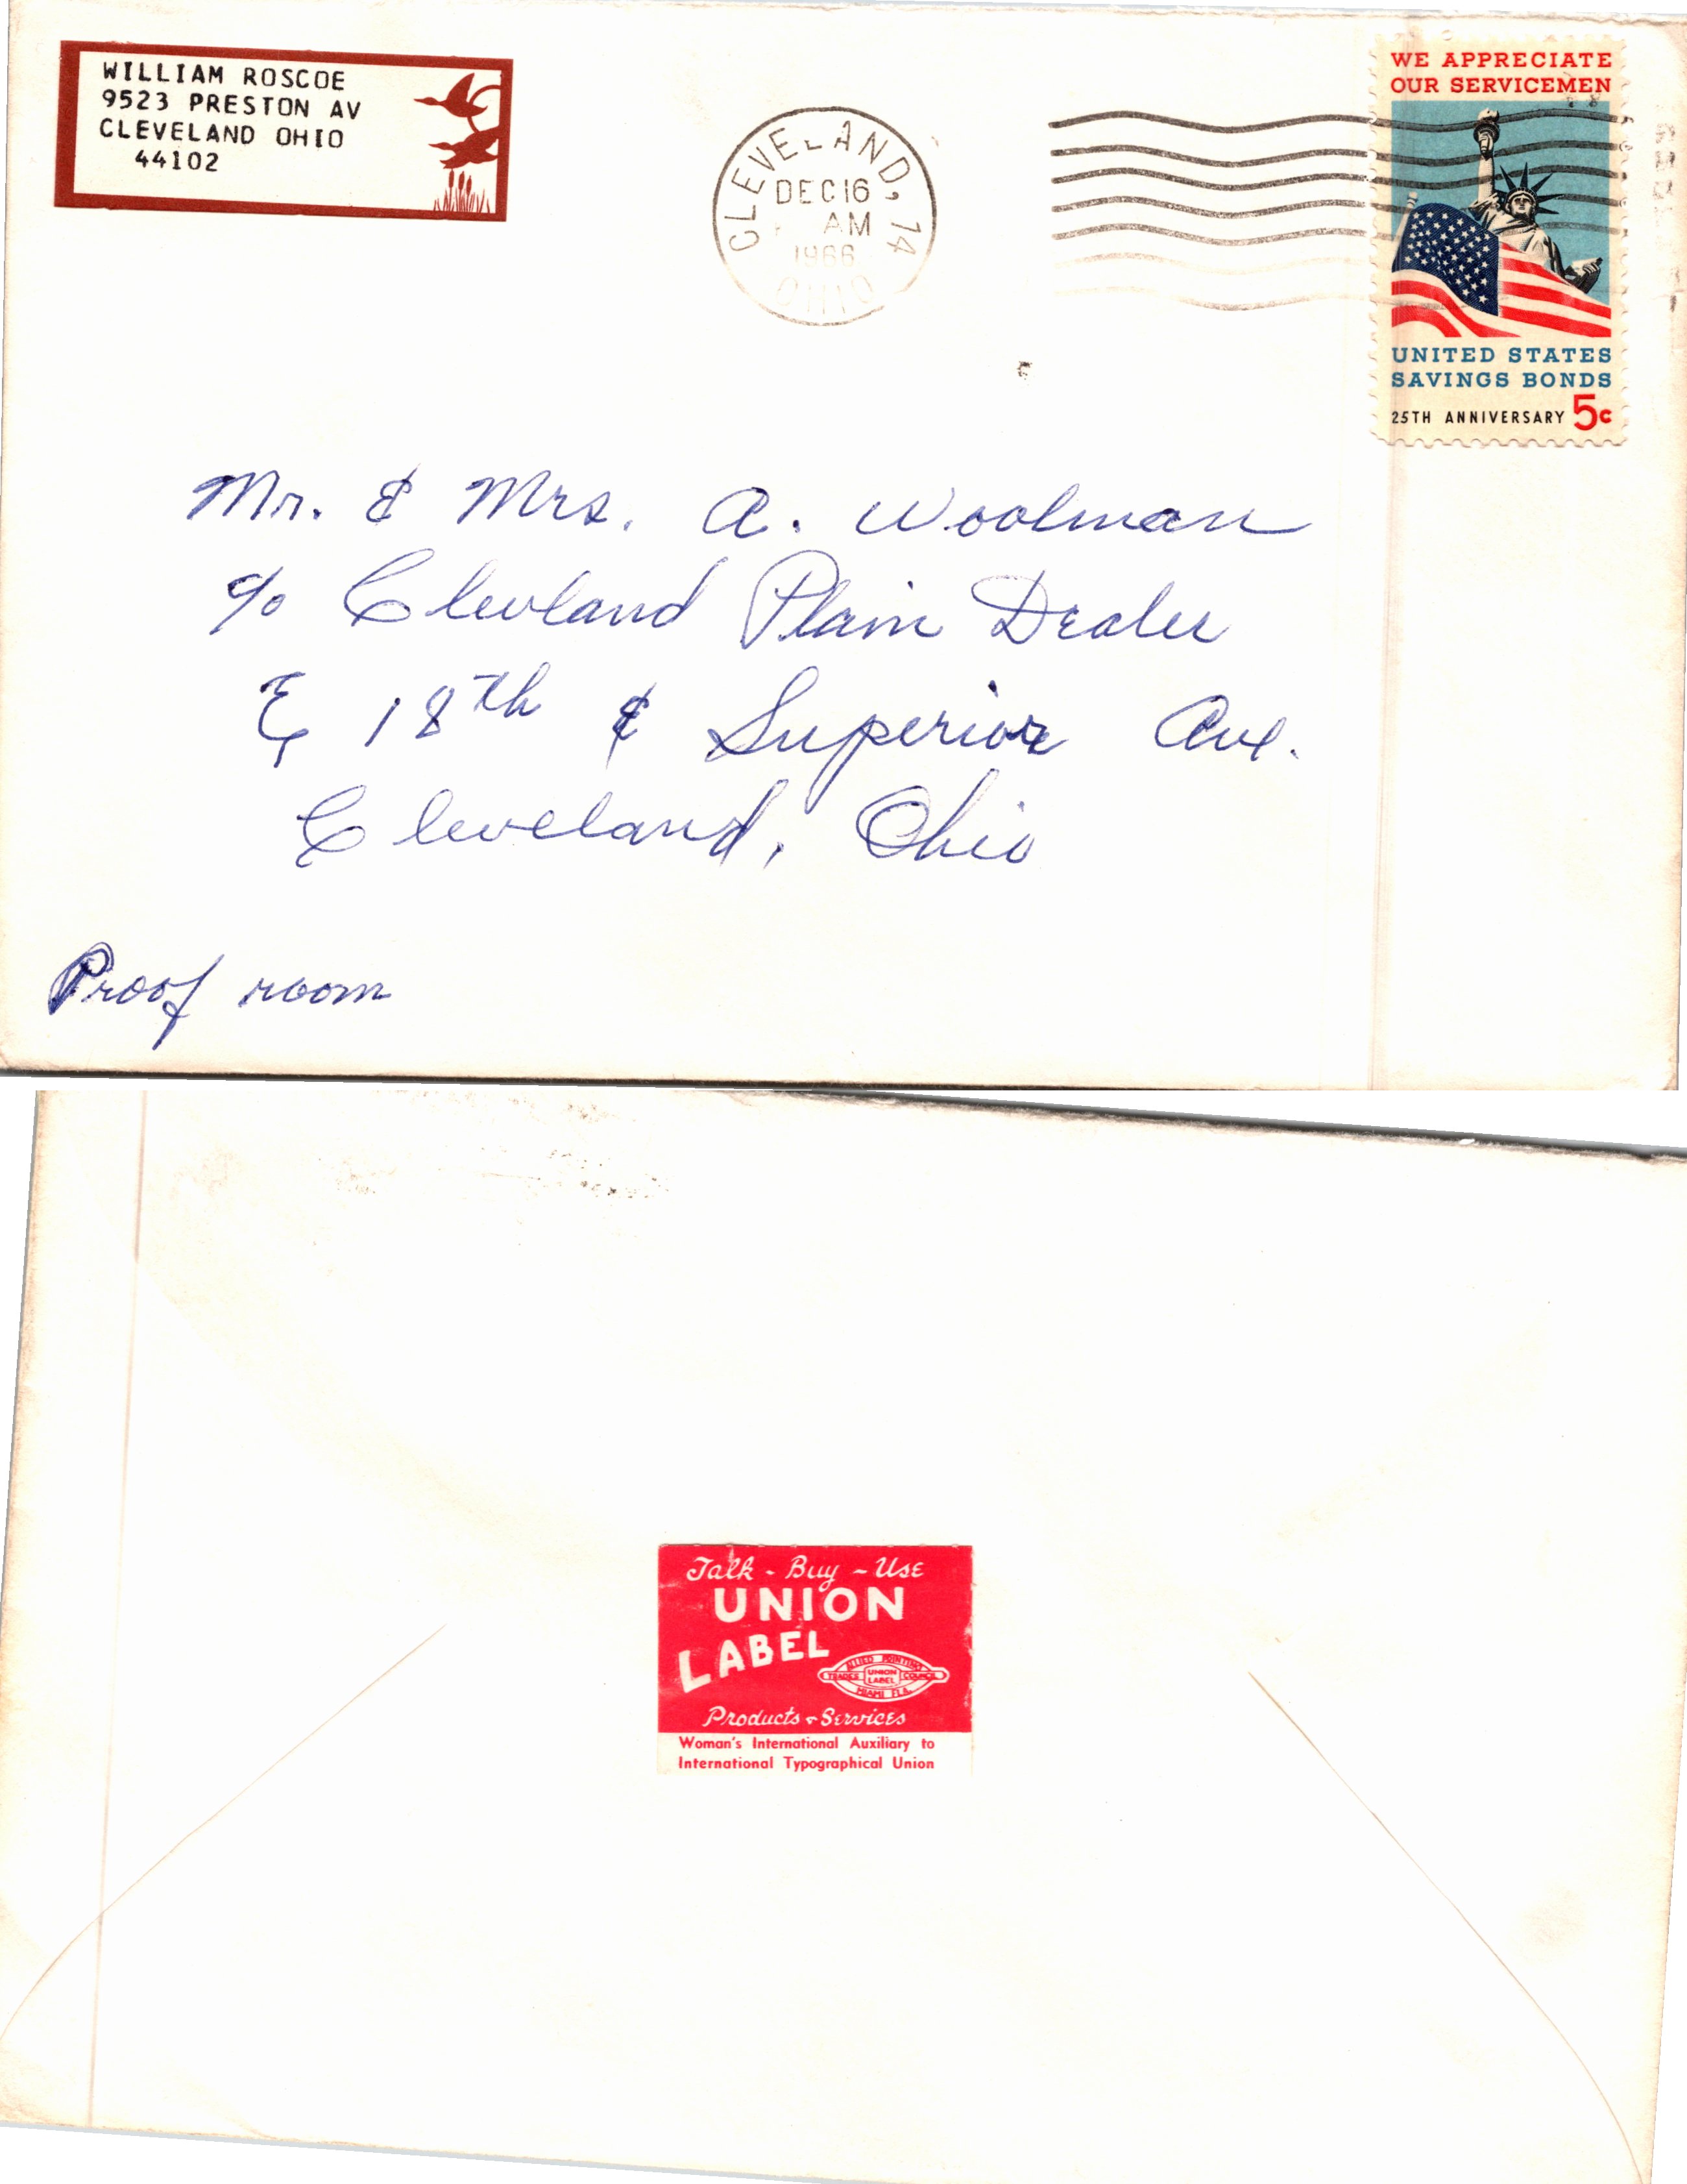 WILLIAM ROSCOE
9523 PRESTON AV
CLEVELAND OHIO
44102
CLEVELAND, 14
DEC 16
AM
1966
OHIO
WE APPRECIATE
OUR SERVICEMEN
UNITED STATES
SAVINGS BONDS
25TH ANNIVERSARY 5c
Mr. & Mrs. A. Woolman
c/o Clevland Plain Dealer
E 18th & Superior Ave.
Cleveland, Ohio
Proof room
Talk - Buy - Use
UNION
LABEL
ALLIED PRINTING
TRADES UNION LABEL COUNCIL
MIAMI FLA.
Products & Services
Woman's International Auxiliary to
International Typographical Union